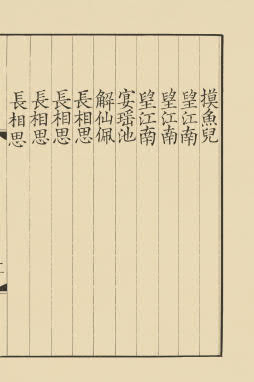 摸魚兒
望江南
望江南
望江南
宴瑶池
解仙佩
長相思
長相思
長相思
長相思